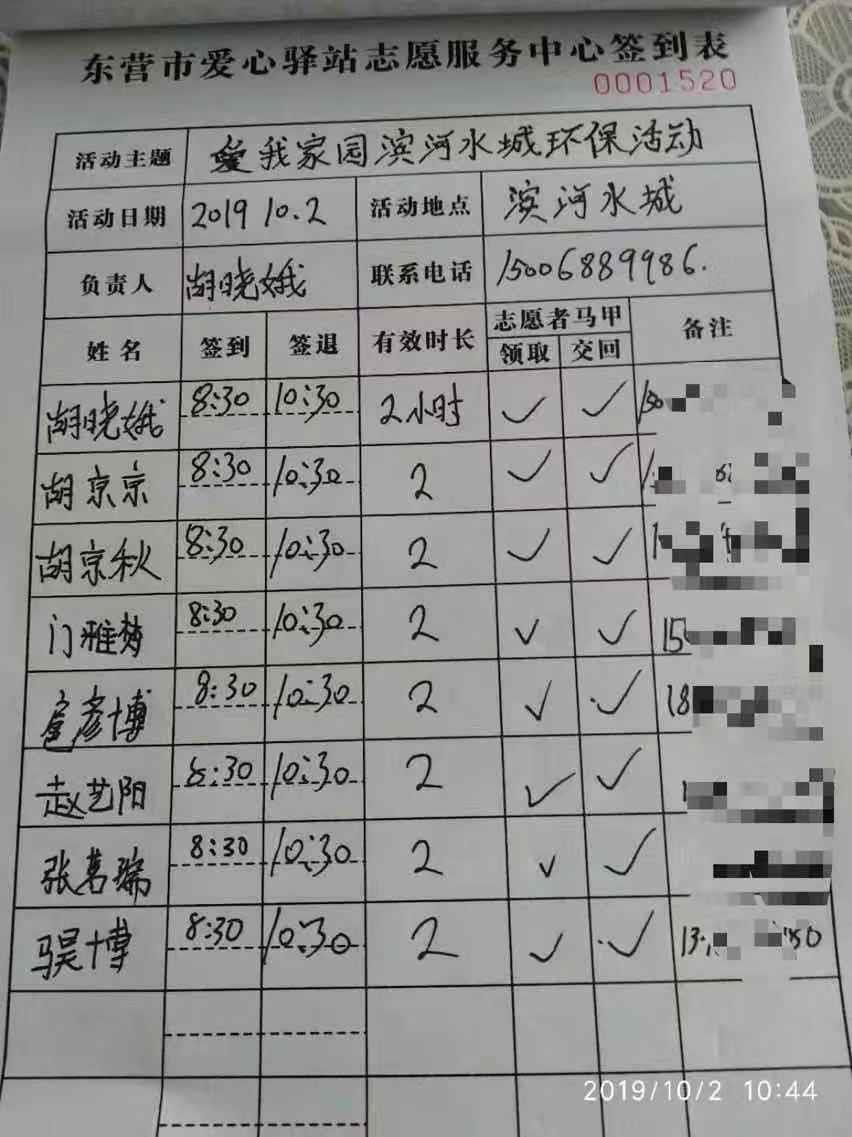 东营市爱心驿站志愿服务中心签到表
0001520
活动主题 爱我家园滨河水城环保活动
活动日期 2019 10.2 活动地点 滨河水城
负责人 胡晓娥 联系电话 15006889986.
姓名 签到 签退 有效时长 志愿者马甲 领取 交回 备注
胡晓娥 8:30 10:30 2小时 ✓ ✓
胡京京 8:30 10:30 2 ✓ ✓
胡京秋 8:30 10:30 2 ✓ ✓
门雅梦 8:30 10:30 2 ✓ ✓ 15
扈彦博 8:30 10:30 2 ✓ ✓ 18
赵艺阳 8:30 10:30 2 ✓ ✓
张茗瑞 8:30 10:30 2 ✓ ✓
骐昊博 8:30 10:30 2 ✓ ✓ 13
2019/10/2 10:44